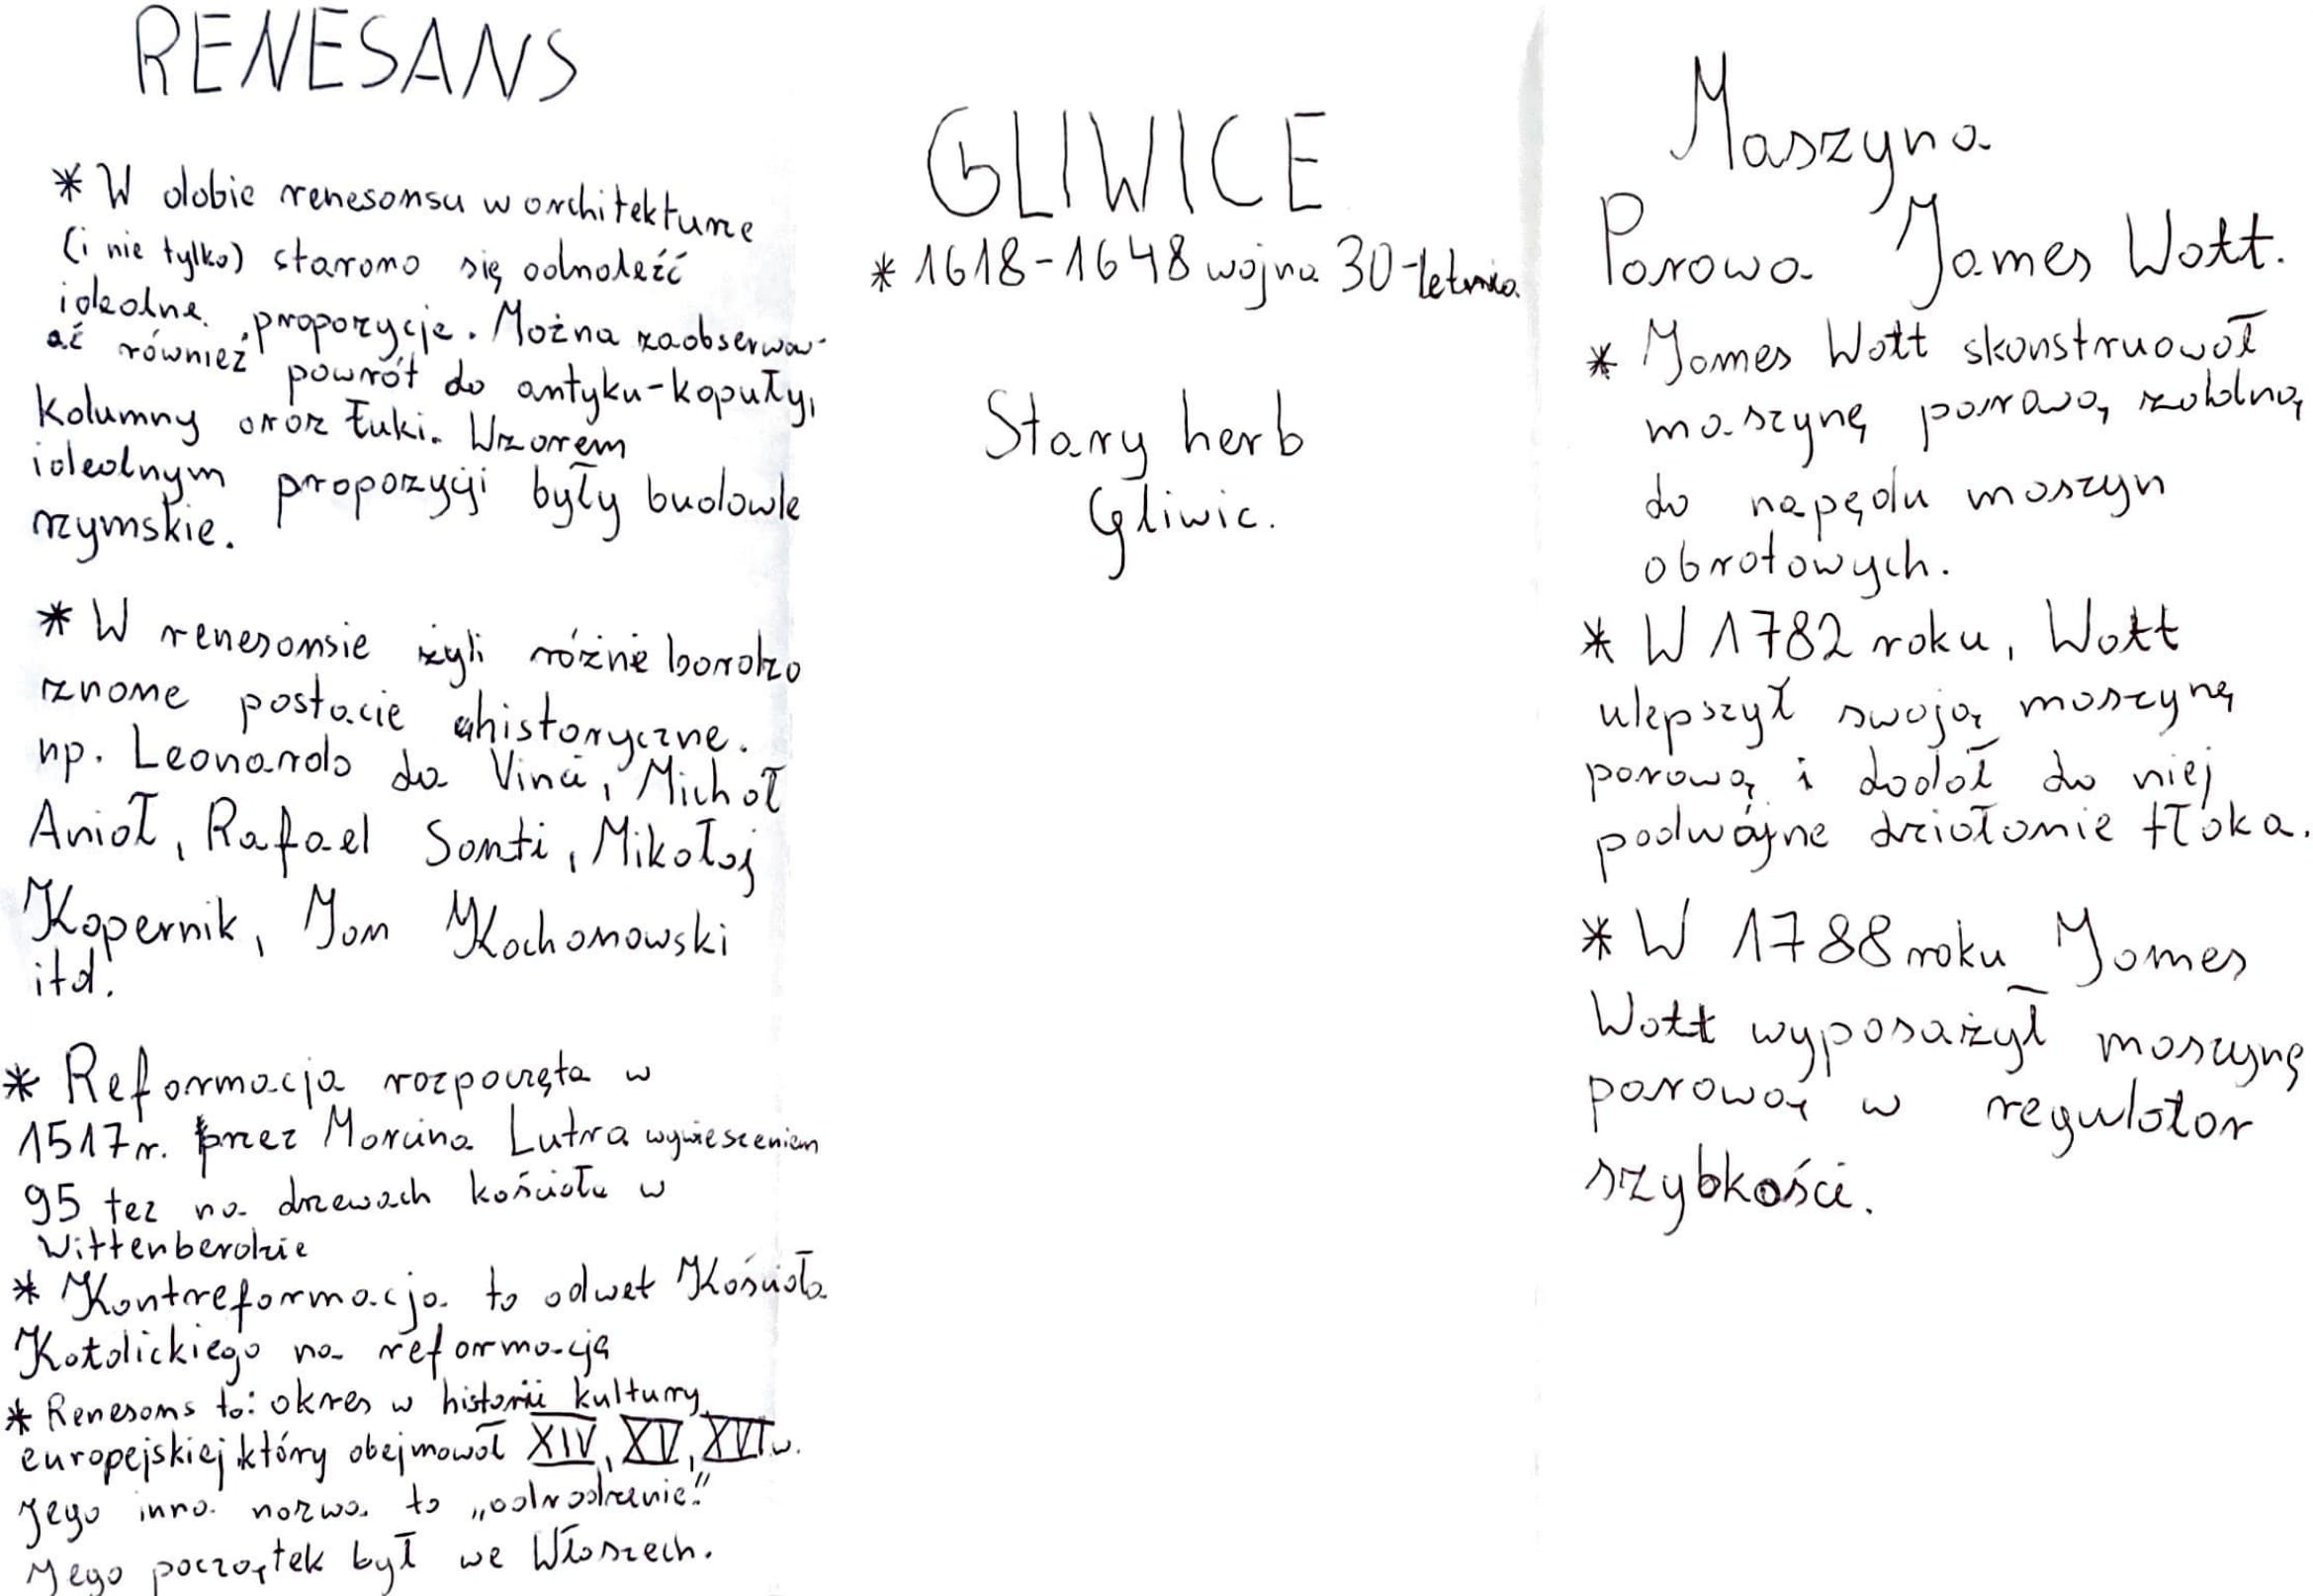 RENESANS
* W dobie renesansu w architekturze
(i nie tylko) starano się odnaleźć
idealne proporycje. Można zaobserwow-
ać również powrót do antyku-kopuły,
kolumny oraz łuki. Wzorem
idealnym proporzycji były budowle
rzymskie.
* W renesansie żyli różne bardzo
znane postacie historyczne.
np. Leonardo da Vinci, Michał
Anioł, Rafael Santi, Mikołaj
Kopernik, Jan Kochanowski
itd.
* Reformacja rozpoczęta w
1517r. przez Marcina Lutra wywieszeniem
95 tez na drzewach kościoła w
Wittenberdzie
* Kontreformacja to odwet Kościoła
Katolickiego na reformację
* Renesans to: okres w historii kultury
europejskiej który obejmował XIV, XV, XVI w.
Jego inna nazwa to „odrodzenie."
Jego początek był we Włoszech.
GLIWICE
* 1618-1648 wojna 30-letnia
Stary herb
Gliwic.
Maszyna
Parowa James Watt.
* James Watt skonstruował
maszynę parową zdolną
do napędu maszyn
obrotowych.
* W 1782 roku, Watt
ulepszył swoją maszynę
parową i dodał do niej
podwójne działanie tłoka.
* W 1788 roku James
Watt wyposażył maszynę
parową w regulator
szybkości.